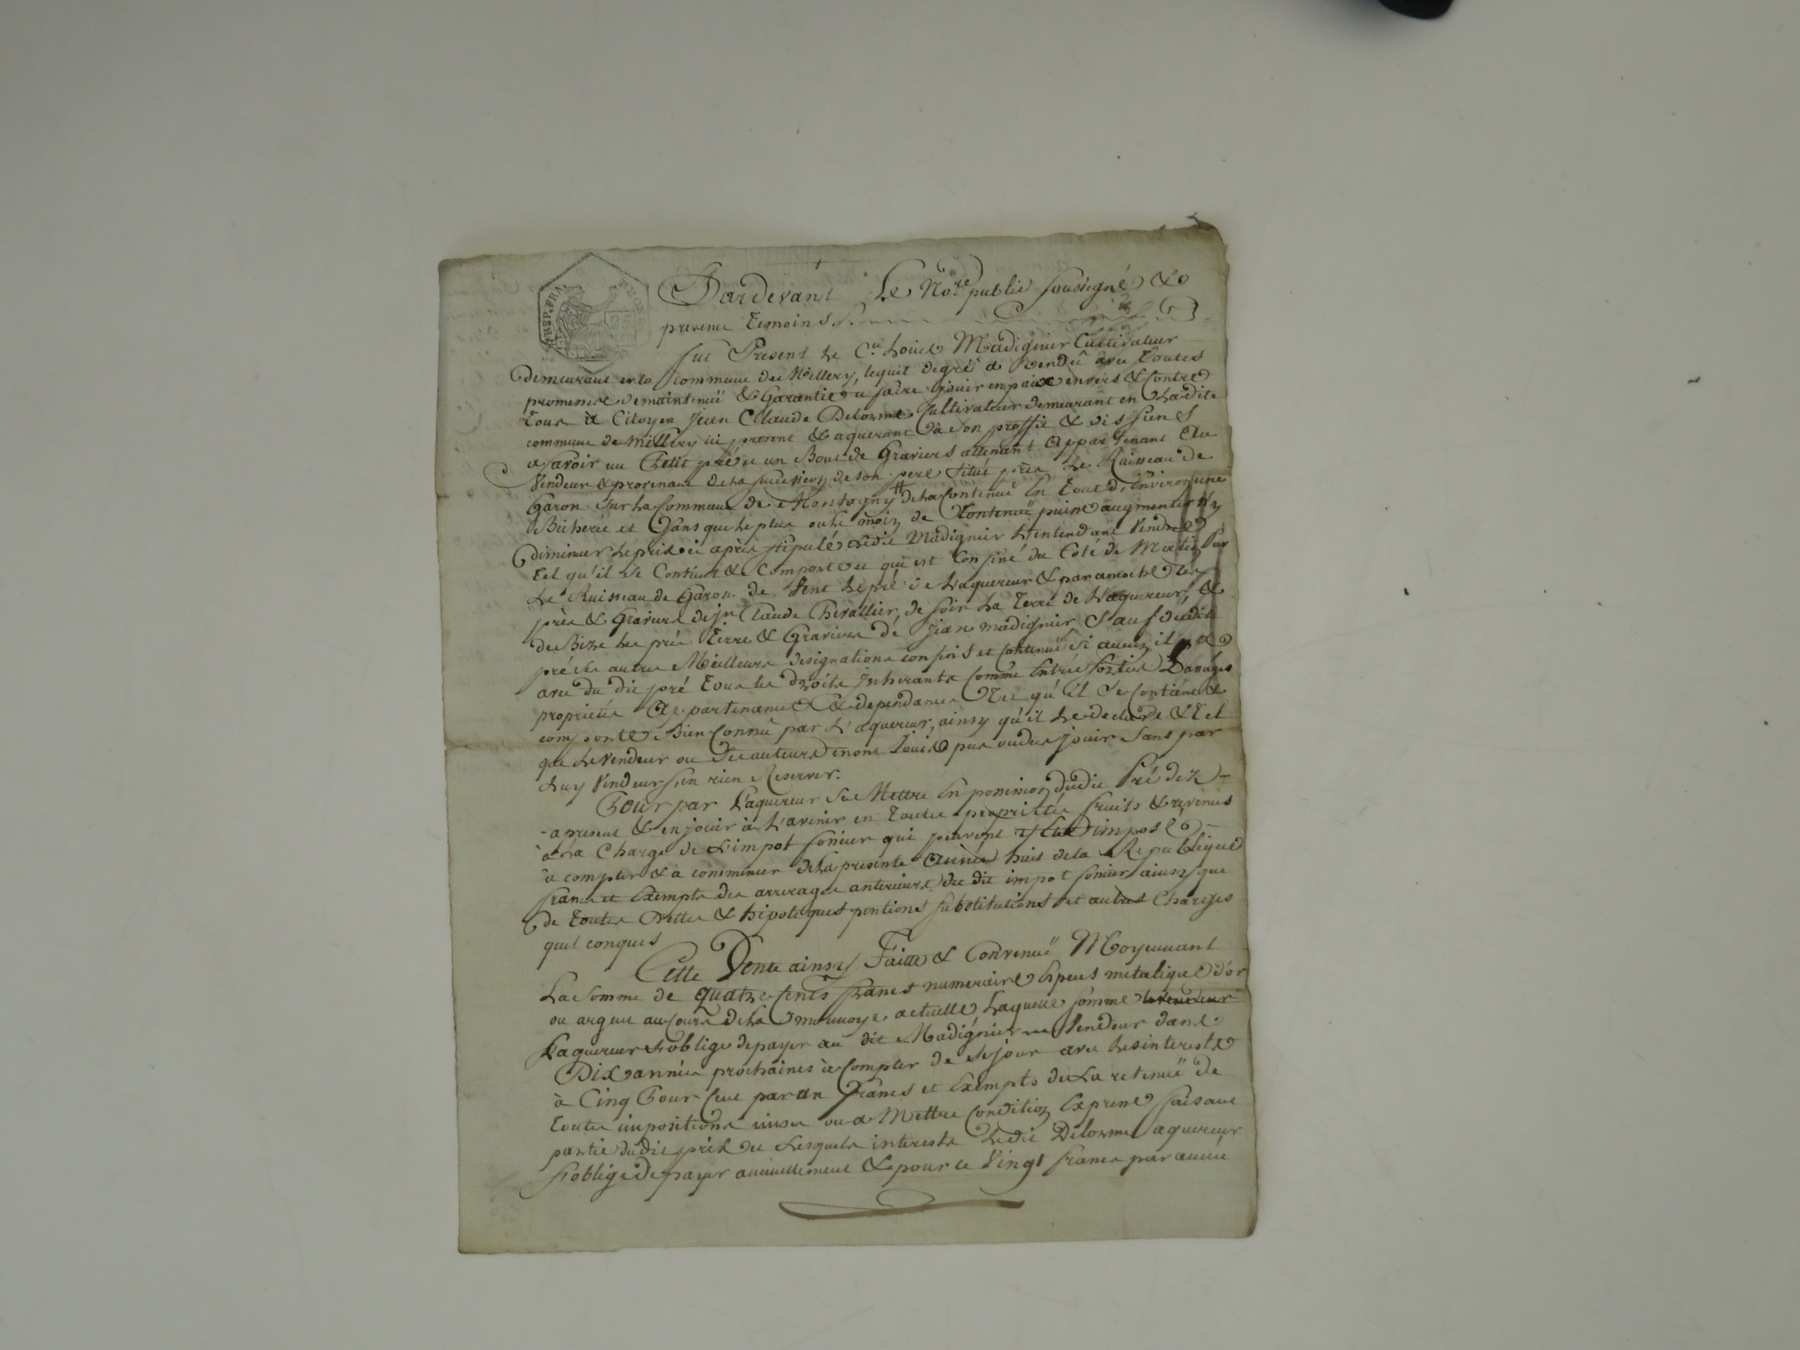 REP. FRA
Pardevant Le No.re public soussigné &
presence temoins
fut Present Le C.en Louis Madignier Cultivateur
demeurant en la commune de Millery, lequel de gré a vendu avec toutes
promesses de maintenue & Garantie & faire jouir en paix envers & contre
tous a Citoyen Jean Claude Delorme Cultivateur demeurant en Ladite
commune de Millery ici present & aquerant à son proffit & des siens
a savoir un Petit pré & un Bout de Graviers attenant appartenant au
Vendeur & provenant de la succession de son pere situé près Le Ruisseau de
Garon sur la Commune de Montagny de la Contenue En tout d'environ une
Bicherée et sans que le plus ou le moin de Contenuë puisse augmenter ny
diminuer le prix ci après stipulé ledit Madignier Entendant Vendre
tel qu'il se Contient & Comporte & qui est Confiné du Coté de Matin par
Le Ruisseau de Garon de Vent le pré de L'aquereur & par amoitié les
près & Graviers de Jn Claude Chevallier, de soir La Terre de L'aquereur, &
de Bize les près Terre & Graviers de Jean Madignier Sauf dudit
pré ses autres Meilleures designations confins et contenuë si aucun il y a
avec du dit pré tous les droits Inherants comme Entrées sorties
proprietés Apartenances & dependances Tel qu'il se Contient &
comporte Bien Connu par L'aquereur, ainsy qu'il Le declare & Tel
que Le Vendeur ou ses auteurs en ont Joui pus ou dus jouir Sans par
Luy Vendeur s'en rien Reserver.
Pour par L'aquereur Se Mettre En possession dudit Pré dez
apresent & en jouir à L'avenir en toutes proprietés fruits & revenus
à la Charge de L'impot foncier qui peuvent y etre imposé
à compter & à commencer de la presente année huit de la Republique
franc et Exempts des arrerages anterieurs du dit impot foncier ainsy que
de toutes Dettes & hipoteques pentions substitutions et autres Charges
quel conques
Cette Vente ainsy Faitte & Convenuë Moyennant
La Somme de quatre cents francs numeraire Especes metalique d'or
ou argent au Cours de la monnoye actuelle Laquelle somme le vendeur
L'aquereur s'oblige de payer au dit Madignier Vendeur dans
Dix années prochaines à compter de se jour avec les interests
à Cinq Pour Cent par an francs et Exempts de La retenuë de
toutes impositions mises ou a Mettre Condition Expresse faisant
partie dudit prix & Lesquels interests Ledit Delorme aquereur
s'oblige De payer annuellement & pour ce Vingt francs par année